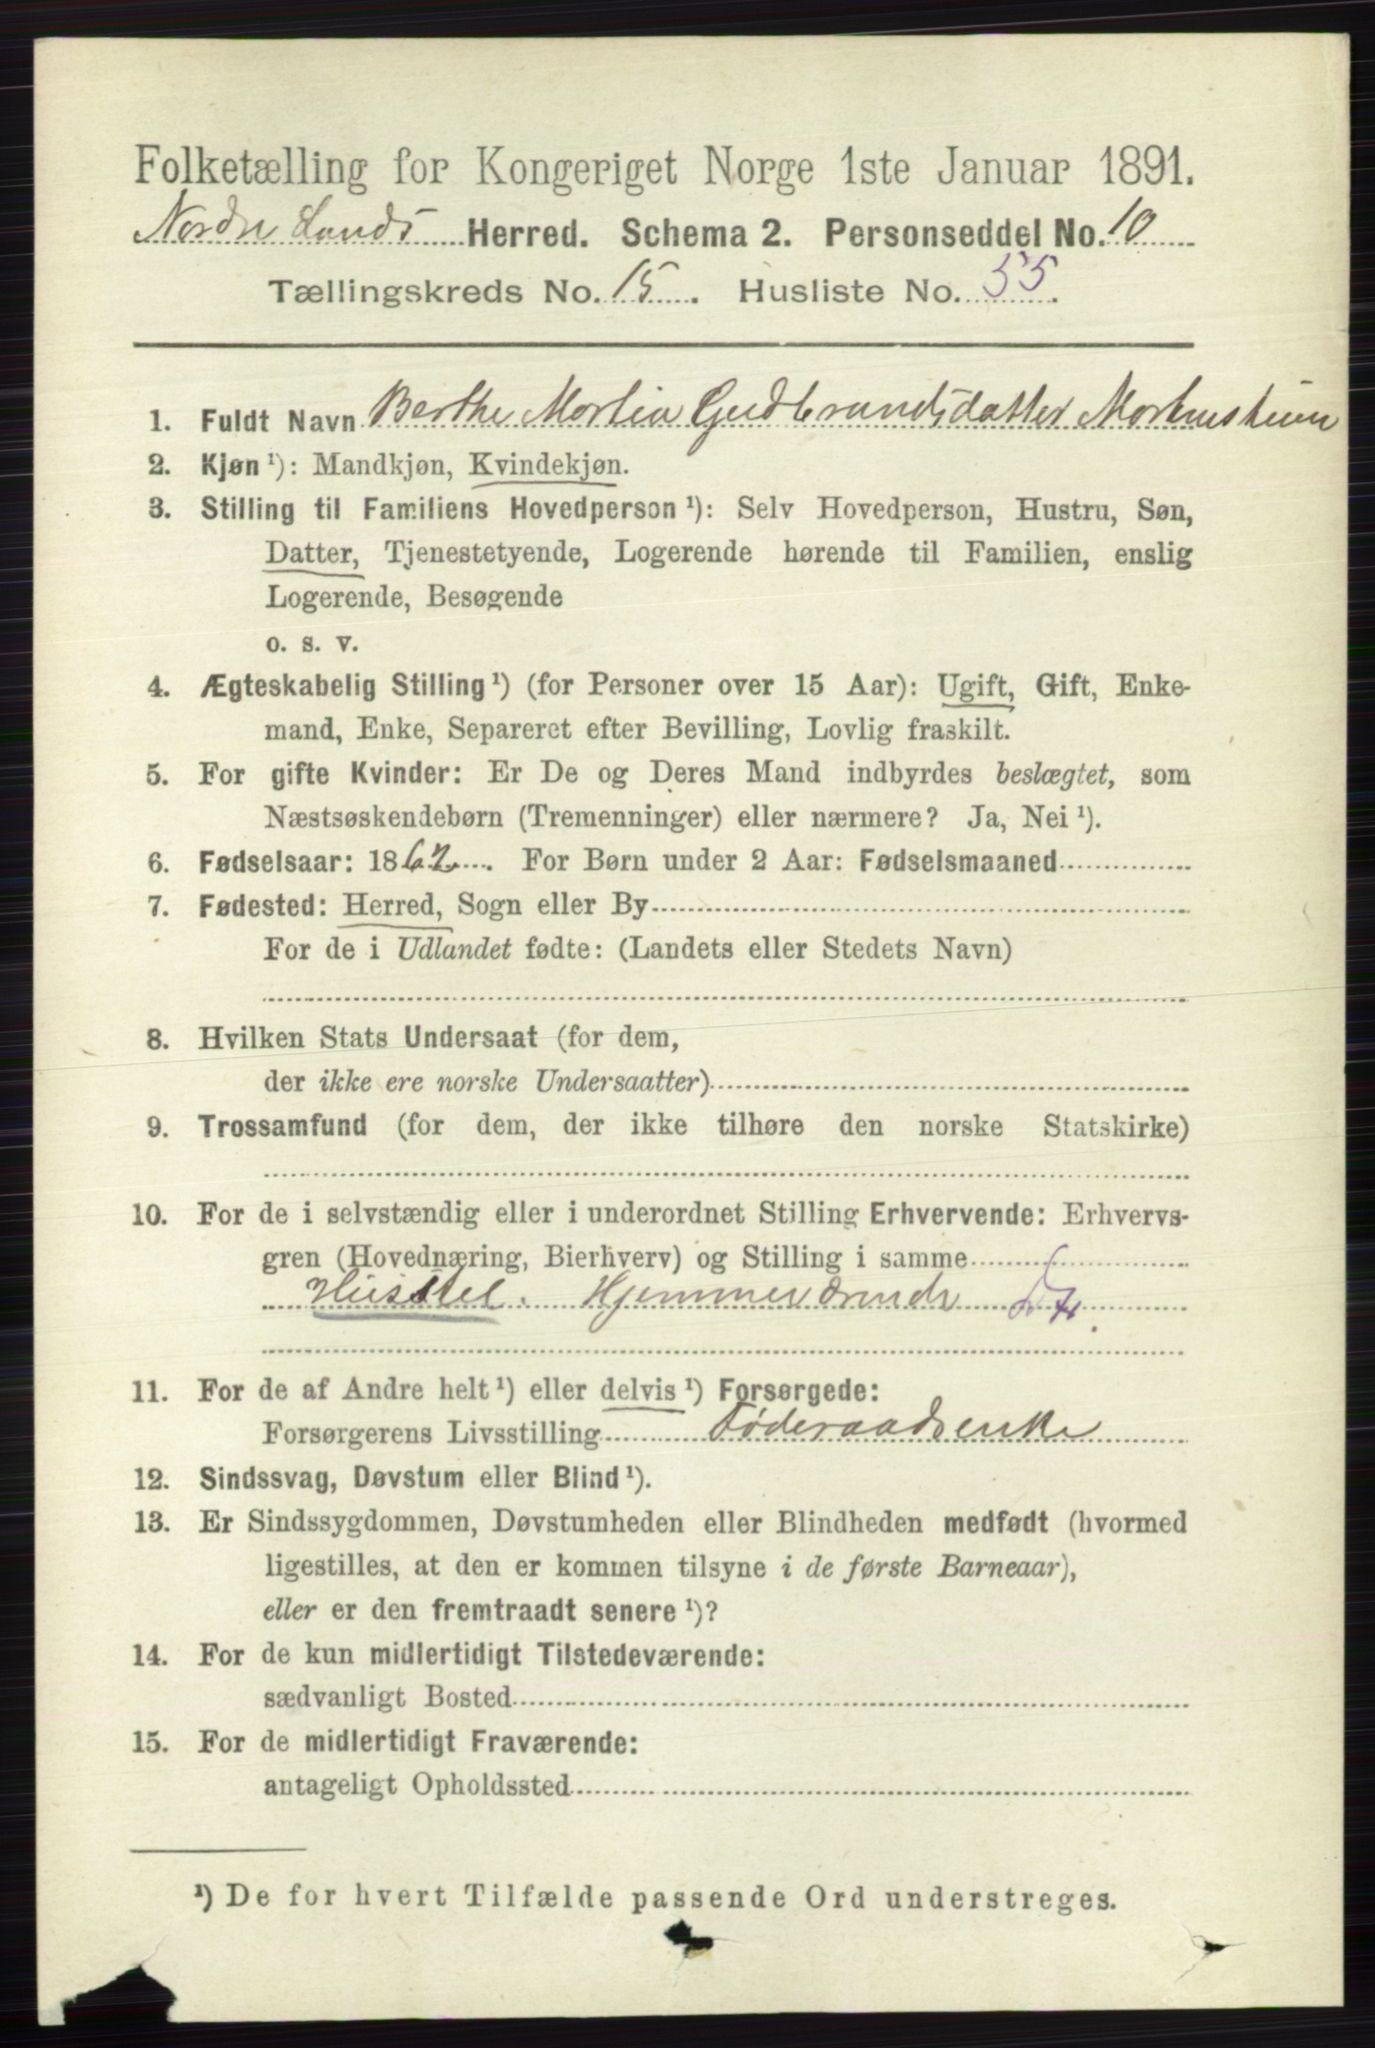 Folketælling for Kongeriget Norge 1ste Januar 1891.
Nordre Lands Herred. Schema 2. Personseddel No. 10
Tællingskreds No. 15. Husliste No. 55.
1. Fuldt Navn Berthe Martia Gudbrandsdatter
2. Kjøn ¹): Mandkjøn, Kvindekjøn.
3. Stilling til Familiens Hovedperson ¹): Selv Hovedperson, Hustru, Søn,
Datter, Tjenestetyende, Logerende hørende til Familien, enslig
Logerende, Besøgende
o. s. v.
4. Ægteskabelig Stilling ¹) (for Personer over 15 Aar): Ugift, Gift, Enke-
mand, Enke, Separeret efter Bevilling, Lovlig fraskilt.
5. For gifte Kvinder: Er De og Deres Mand indbyrdes beslægtet, som
Næstsøskendebørn (Tremenninger) eller nærmere? Ja, Nei ¹).
6. Fødselsaar: 1862. For Børn under 2 Aar: Fødselsmaaned
7. Fødested: Herred, Sogn eller By
For de i Udlandet fødte: (Landets eller Stedets Navn)
8. Hvilken Stats Undersaat (for dem,
der ikke ere norske Undersaatter)
9. Trossamfund (for dem, der ikke tilhøre den norske Statskirke)
10. For de i selvstændig eller i underordnet Stilling Erhvervende: Erhvervs-
gren (Hovednæring, Bierhverv) og Stilling i samme
Husstel. Hjemmeværende
11. For de af Andre helt ¹) eller delvis ¹) Forsørgede:
Forsørgerens Livsstilling Føderaadsenke
12. Sindssvag, Døvstum eller Blind ¹).
13. Er Sindssygdommen, Døvstumheden eller Blindheden medfødt (hvormed
ligestilles, at den er kommen tilsyne i de første Barneaar),
eller er den fremtraadt senere ¹)?
14. For de kun midlertidigt Tilstedeværende:
sædvanligt Bosted
15. For de midlertidigt Fraværende:
antageligt Opholdssted
¹) De for hvert Tilfælde passende Ord understreges.